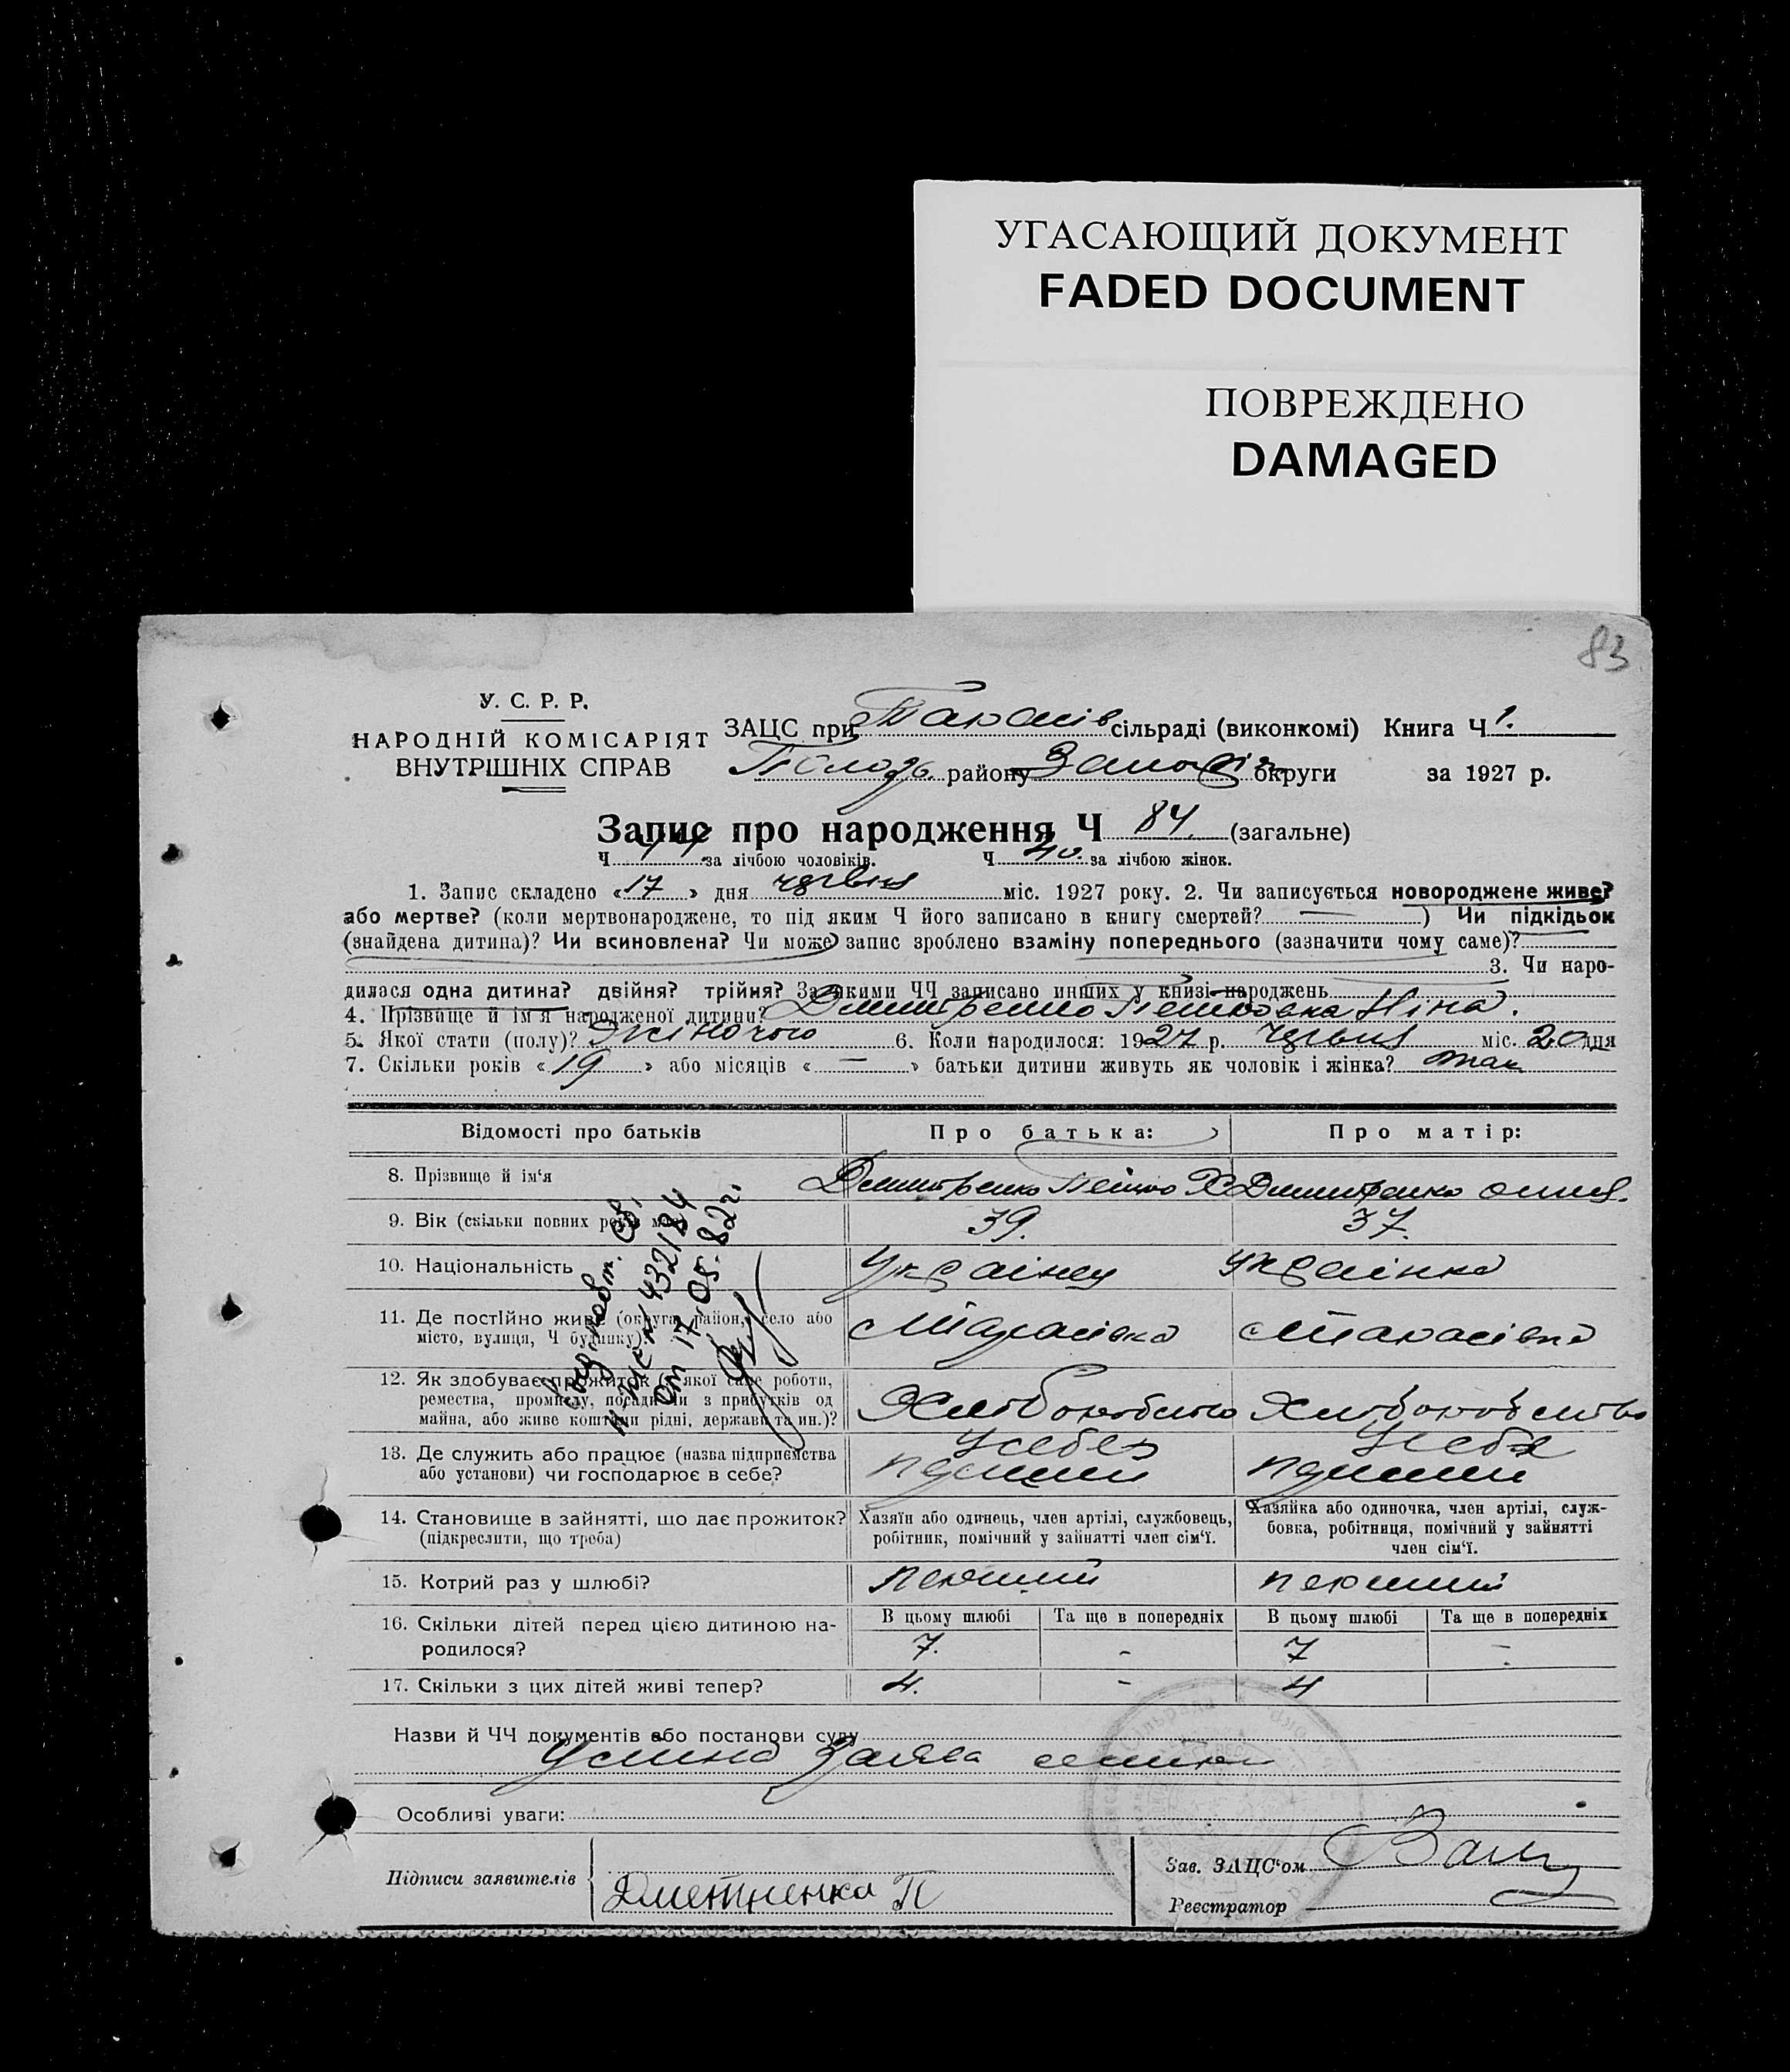 УГАСАЮЩИЙ ДОКУМЕНТ
FADED DOCUMENT
ПОВРЕЖДЕНО
DAMAGED
83
У. С. Р. Р.
НАРОДНІЙ КОМІСАРІЯТ
ВНУТРІШНІХ СПРАВ
ЗАЦС при Тарасів сільраді (виконкомі) Книга Ч 1.
району округи за 1927 р.
Запис про народження Ч 84. (загальне)
Ч 44 за лічбою чоловіків. Ч 40. за лічбою жінок.
1. Запис складено «17» дня червня міс. 1927 року. 2. Чи записується новороджене живе?
або мертве? (коли мертвонароджене, то під яким Ч його записано в книгу смертей? —) Чи підкідьок
(знайдена дитина)? Чи всиновлена? Чи може запис зроблено взаміну попереднього (зазначити чому саме)?
3. Чи наро-
дилася одна дитина? двійня? трійня? За якими ЧЧ записано инших у книзі народжень
4. Прізвище й ім'я народженої дитини? Дмитренко Петровна Ніна.
5. Якої стати (полу)? Жіночого 6. Коли народилося: 1927 р. червня міс. 20 дня
7. Скільки років «19» або місяців «—» батьки дитини живуть як чоловік і жінка? так
Відомості про батьків Про батька: Про матір:
8. Прізвище й ім'я Дмитренко Петро Х Дмитренко
9. Вік (скільки повних років має) 39. 37.
10. Національність Українец Українка
11. Де постійно живе (округа, район, село або
місто, вулиця, Ч будинку) с Тарасівка с Тарасівка
12. Як здобуває прожиток (з якої саме роботи,
ремества, промислу, посади чи з прибутків од
майна, або живе коштами рідні, держави та ин.)? Хліборобство Хліборобство
13. Де служить або працює (назва підприємства
або установи) чи господарює в себе? У себе У себе
14. Становище в зайнятті, що дає прожиток?
(підкреслити, що треба)
Хазяїн або одинець, член артілі, службовець,
робітник, помічний у зайнятті член сім'ї.
Хазяйка або одиночка, член артілі, служ-
бовка, робітниця, помічний у зайнятті
член сім'ї.
15. Котрий раз у шлюбі? перший перший
В цьому шлюбі Та ще в попередніх В цьому шлюбі Та ще в попередніх
16. Скільки дітей перед цією дитиною на-
родилося? 7. - 7 -
17. Скільки з цих дітей живі тепер? 4. - 4
Выд. повт. св.
№ 432184
от 17.05.82г.
Назви й ЧЧ документів або постанови суду
Усина Заява
Особливі уваги:
Підписи заявителів
Дметренка П
Зав. ЗАЦС'ом
Реєстратор